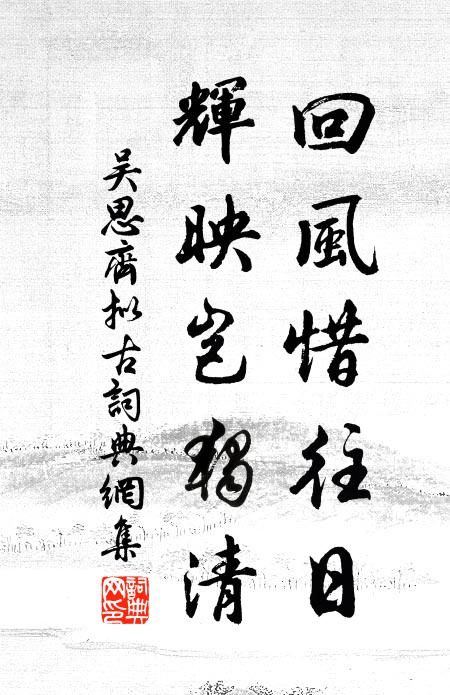 回風惜往日
輝映豈獨清
吴思齊拟古詞典網集
詞典
网印